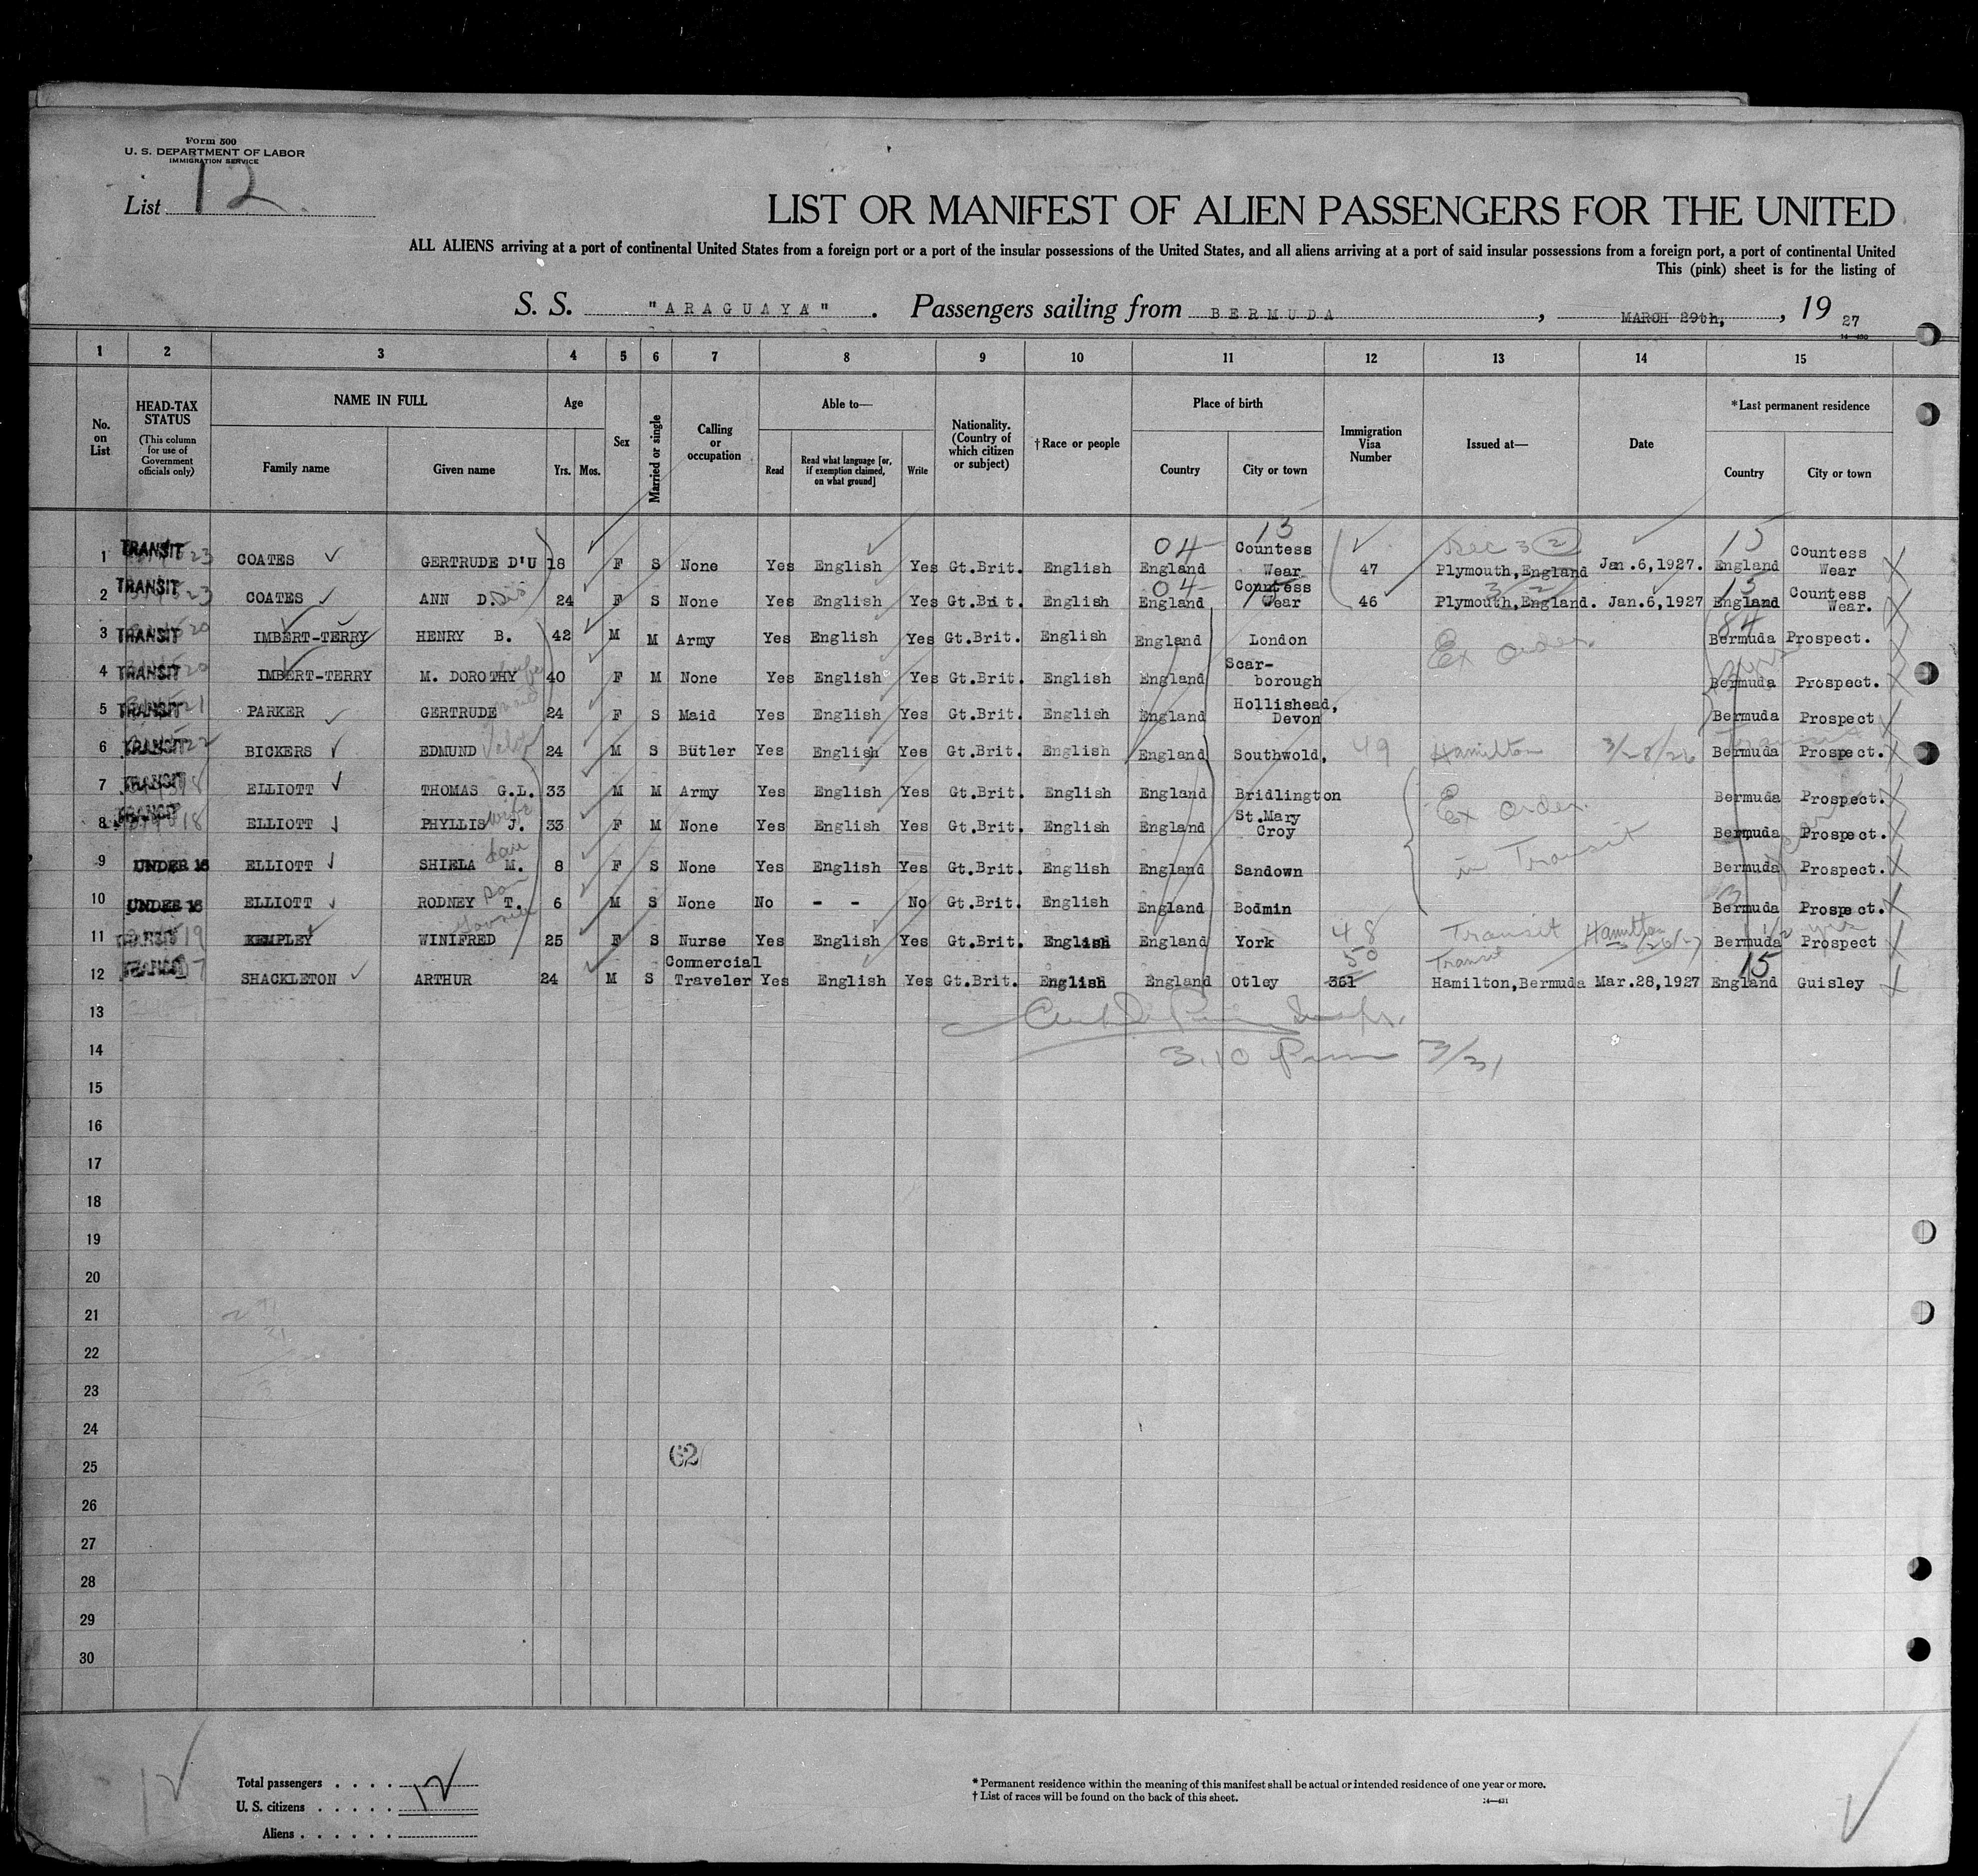 Form 500
U. S. DEPARTMENT OF LABOR
IMMIGRATION SERVICE
List 12
LIST OR MANIFEST OF ALIEN PASSENGERS FOR THE UNITED
ALL ALIENS arriving at a port of continental United States from a foreign port or a port of the insular possessions of the United States, and all aliens arriving at a port of said insular possessions from a foreign port, a port of continental United
This (pink) sheet is for the listing of
S. S. "ARAGUAYA". Passengers sailing from BERMUDA, MARCH 29th, 1927
14-430
1 2 3 4 5 6 7 8 9 10 11 12 13 14 15
No. on List
HEAD-TAX STATUS (This column for use of Government officials only)
NAME IN FULL
Family name
Given name
Age
Yrs. Mos.
Sex
Married or single
Calling or occupation
Able to—
Read
Read what language [or, if exemption claimed, on what ground]
Write
Nationality. (Country of which citizen or subject)
†Race or people
Place of birth
Country
City or town
Immigration Visa Number
Issued at—
Date
*Last permanent residence
Country
City or town
04 13 Sec 3 (2) 15
1 TRANSIT 23 COATES GERTRUDE D'U 18 F S None Yes English Yes Gt.Brit. English England Countess Wear 47 Plymouth,England Jan.6,1927. England Countess Wear
04 3 2 15
2 TRANSIT 23 COATES ANN D. Sis 24 F S None Yes English Yes Gt.Brit. English England Countess Wear 46 Plymouth,England. Jan.6,1927 England Countess Wear.
84
3 TRANSIT 20 IMBERT-TERRY HENRY B. 42 M M Army Yes English Yes Gt.Brit. English England London Ex Order. Bermuda Prospect.
4 TRANSIT 20 IMBERT-TERRY M. DOROTHY wife 40 F M None Yes English Yes Gt.Brit. English England Scar-borough Bermuda Prospect.
5 TRANSIT 21 PARKER GERTRUDE maid 24 F S Maid Yes English Yes Gt.Brit. English England Hollishead, Devon Bermuda Prospect
6 TRANSIT 22 BICKERS EDMUND Valet 24 M S Butler Yes English Yes Gt.Brit. English England Southwold, 49 Hamilton 3/28/26 Bermuda Prospect.
7 TRANSIT 18 ELLIOTT THOMAS G.L. 33 M M Army Yes English Yes Gt.Brit. English England Bridlington Ex Order. Bermuda Prospect.
8 TRANSIT 18 ELLIOTT PHYLLIS J. wife 33 F M None Yes English Yes Gt.Brit. English England St.Mary Croy in Transit Bermuda Prospect.
9 UNDER 16 ELLIOTT SHIELA M. dau 8 F S None Yes English Yes Gt.Brit. English England Sandown Bermuda Prospect.
10 UNDER 16 ELLIOTT RODNEY T. son 6 M S None No - - No Gt.Brit. English England Bodmin Bermuda Prospect.
11 TRANSIT 19 KEMPLEY WINIFRED 25 F S Nurse Yes English Yes Gt.Brit. English England York 48 Transit Hamilton Bermuda Prospect
50 Transit 15
12 TRANSIT 17 SHACKLETON ARTHUR 24 M S Commercial Traveler Yes English Yes Gt.Brit. English England Otley 361 Hamilton,Bermuda Mar.28,1927 England Guisley
13
14 3.10 Pm 3/31
15
16
17
18
19
20
21
22
23
24
62
25
26
27
28
29
30
12
Total passengers . . . . 12
U. S. citizens . . . . .
Aliens . . . . . .
* Permanent residence within the meaning of this manifest shall be actual or intended residence of one year or more.
† List of races will be found on the back of this sheet.
14—431